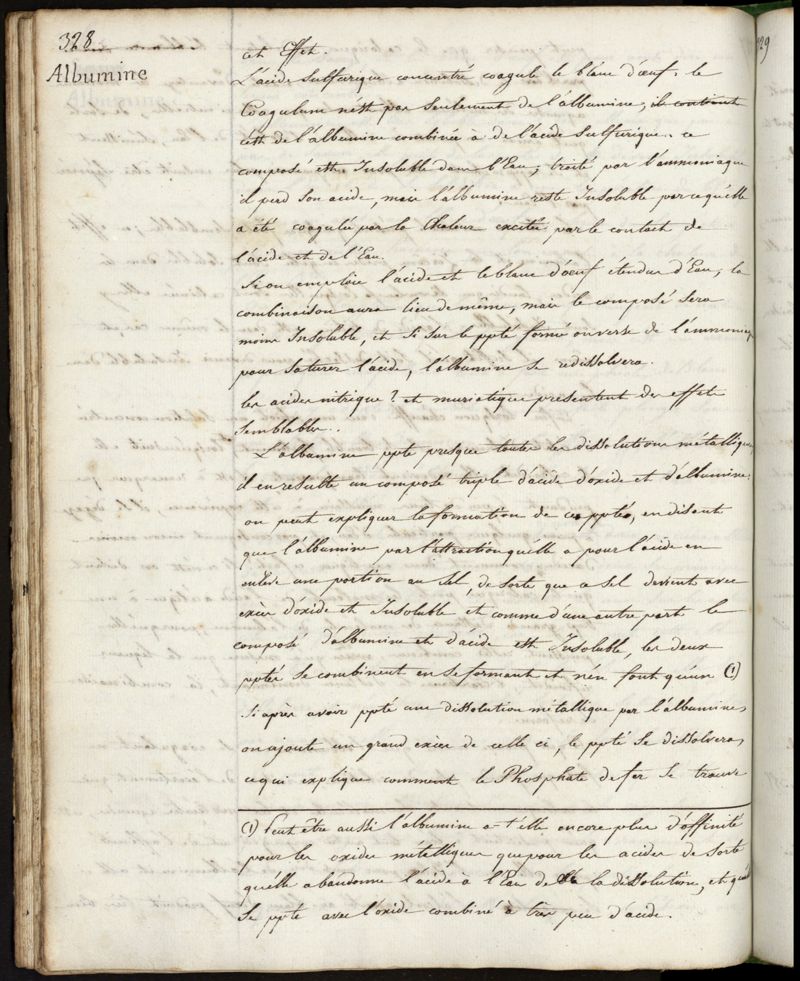 328
Albumine
cet Effet.
L'acide Sulfurique concentré coagule le blanc d'œuf, le
Coagulum n'est pas Seulement de l'albumine, il contient
c'est de l'albumine combinée à de l'acide Sulfurique. ce
composé est Insoluble dans l'Eau, traité par l'ammoniaque
il perd Son acide, mais l'albumine reste Insoluble parcequ'elle
a été coagulée par la Chaleur excitée par le contact de
l'acide et de l'Eau.
Si on emploie l'acide et le blanc d'œuf étendus d'Eau, la
combinaison aura lieu de même, mais le composé Sera
moins Insoluble, et Si Sur le ppté formé on verse de l'ammoniaq
pour Saturer l'acide, l'albumine Se redissolvera.
les acides nitrique? et muriatique présentent des effets
Semblables.
L'albumine ppte presque toutes les dissolutions métalliques,
il en resulte un composé triple d'acide d'oxide et d'albumine.
on peut expliquer la formation de ces pptés, en disant
que l'albumine par l'attraction qu'elle a pour l'acide en
enlève une portion au Sel, de Sorte que ce Sel devient avec
excès d'oxide et Insoluble et comme d'une autre part le
composé d'albumine et d'acide est Insoluble, les deux
pptés Se combinent en Se formant et n'en font qu'un (1)
Si après avoir ppté une dissolution métallique par l'albumine,
on ajoute un grand excès de celle ci, le ppté Se dissolvera,
ce qui explique comment le Phosphate de fer Se trouve
(1) Peut être aussi l'albumine a-t'elle encore plus d'affinité
pour les oxides métalliques que pour les acides de Sorte
qu'elle abandonne l'acide à l'Eau de la dissolution, et qu'elle
Se ppté avec l'oxide combiné à très peu d'acide.